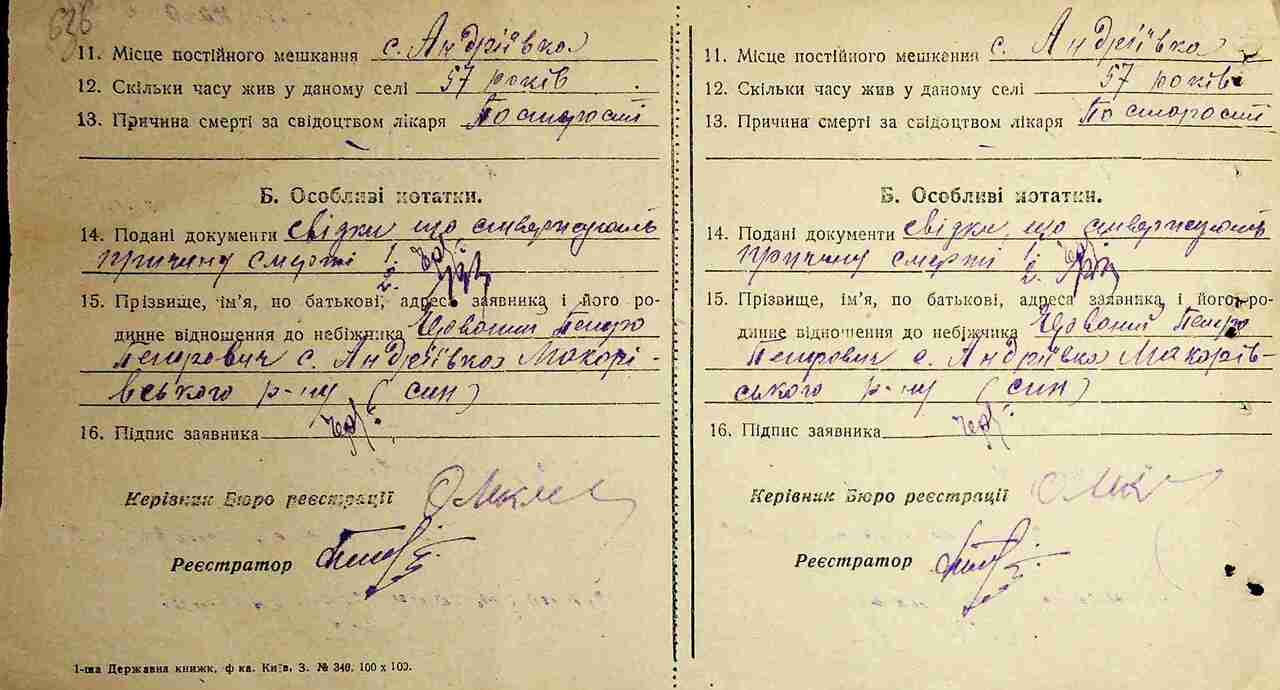 636
11. Місце постійного мешкання с. Андріївка
12. Скільки часу жив у даному селі 57 років
13. Причина смерті за свідоцтвом лікаря По старості
Б. Особливі нотатки.
14. Подані документи свідки що ствержують
причину смерті 1.
2.
15. Прізвище, ім'я, по батькові, адреса заявника і його ро-
динне відношення до небіжчика Петро
Петрович с. Андріївка Макарі-
вського р-ну (син)
16. Підпис заявника
Керівник Бюро реєстрації
Реєстратор
1-ша Державна книжк. ф-ка. Київ. З. № 340. 100 х 100.
11. Місце постійного мешкання с. Андріївка
12. Скільки часу жив у даному селі 57 років
13. Причина смерті за свідоцтвом лікаря По старості
Б. Особливі нотатки.
14. Подані документи свідки що ствержують
причину смерті 1.
2.
15. Прізвище, ім'я, по батькові, адреса заявника і його ро-
динне відношення до небіжчика Петро
Петрович с. Андріївка Макарів-
ського р-ну (син)
16. Підпис заявника
Керівник Бюро реєстрації
Реєстратор